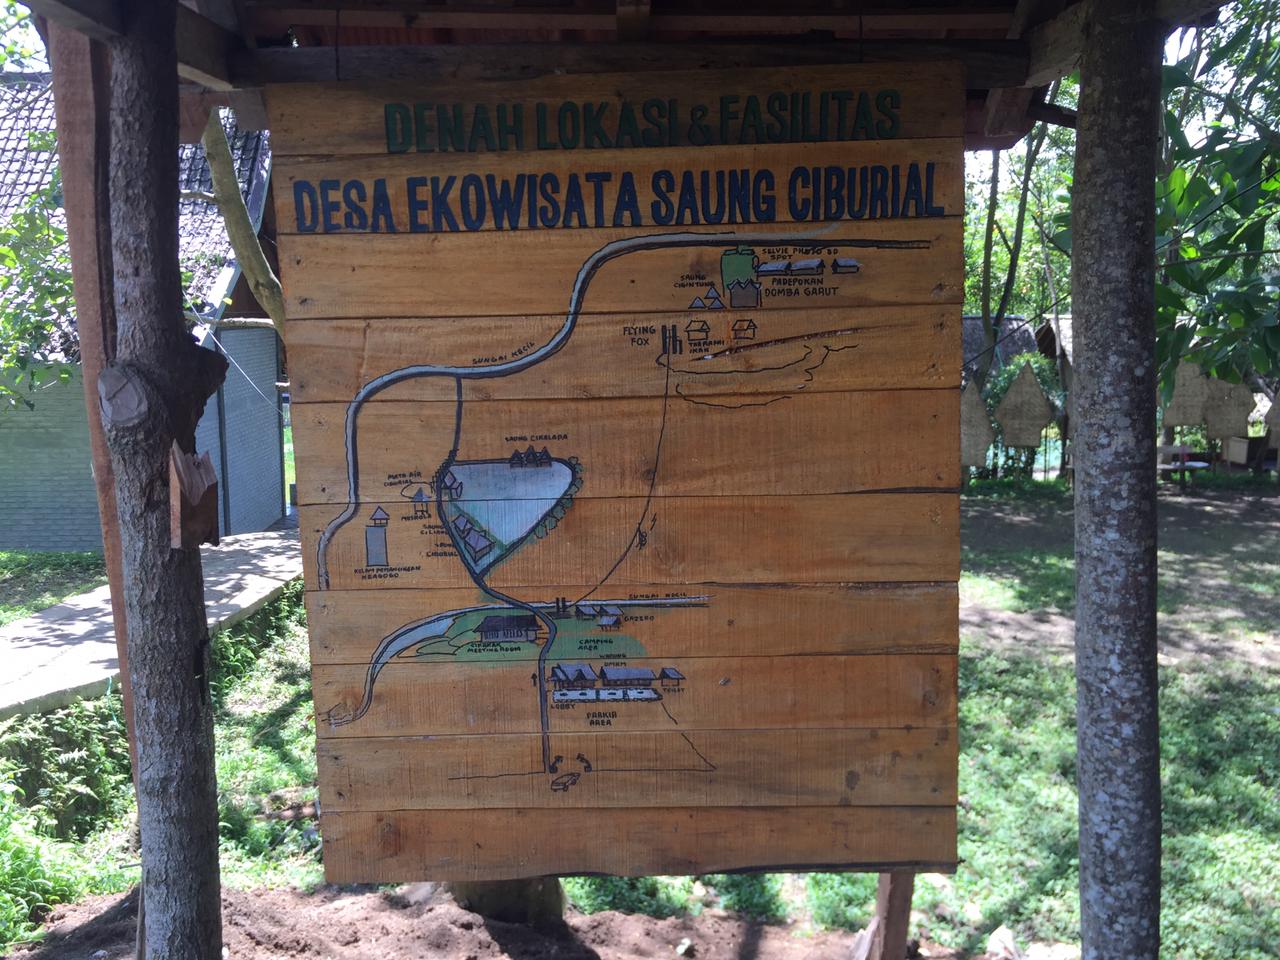 DENAH LOKASI & FASILITAS
DESA EKOWISATA SAUNG CIBURIAL
SELVIE PHOTO 3D
SPOT
SAUNG
CIGINTUNG
PADEPOKAN
DOMBA GARUT
FLYING
FOX
IKAN
SUNGAI KECIL
SAUNG CIKELAPA
MATA AIR
CIBURIAL
MUSHOLA
SAUNG
SAUNG
CIBURIAL
KOLAM PEMANCINGAN
SUNGAI KECIL
GAZEBO
MEETING ROOM
CAMPING
AREA
WARUNG
UMKM
TOILET
LOBBY
PARKIR
AREA